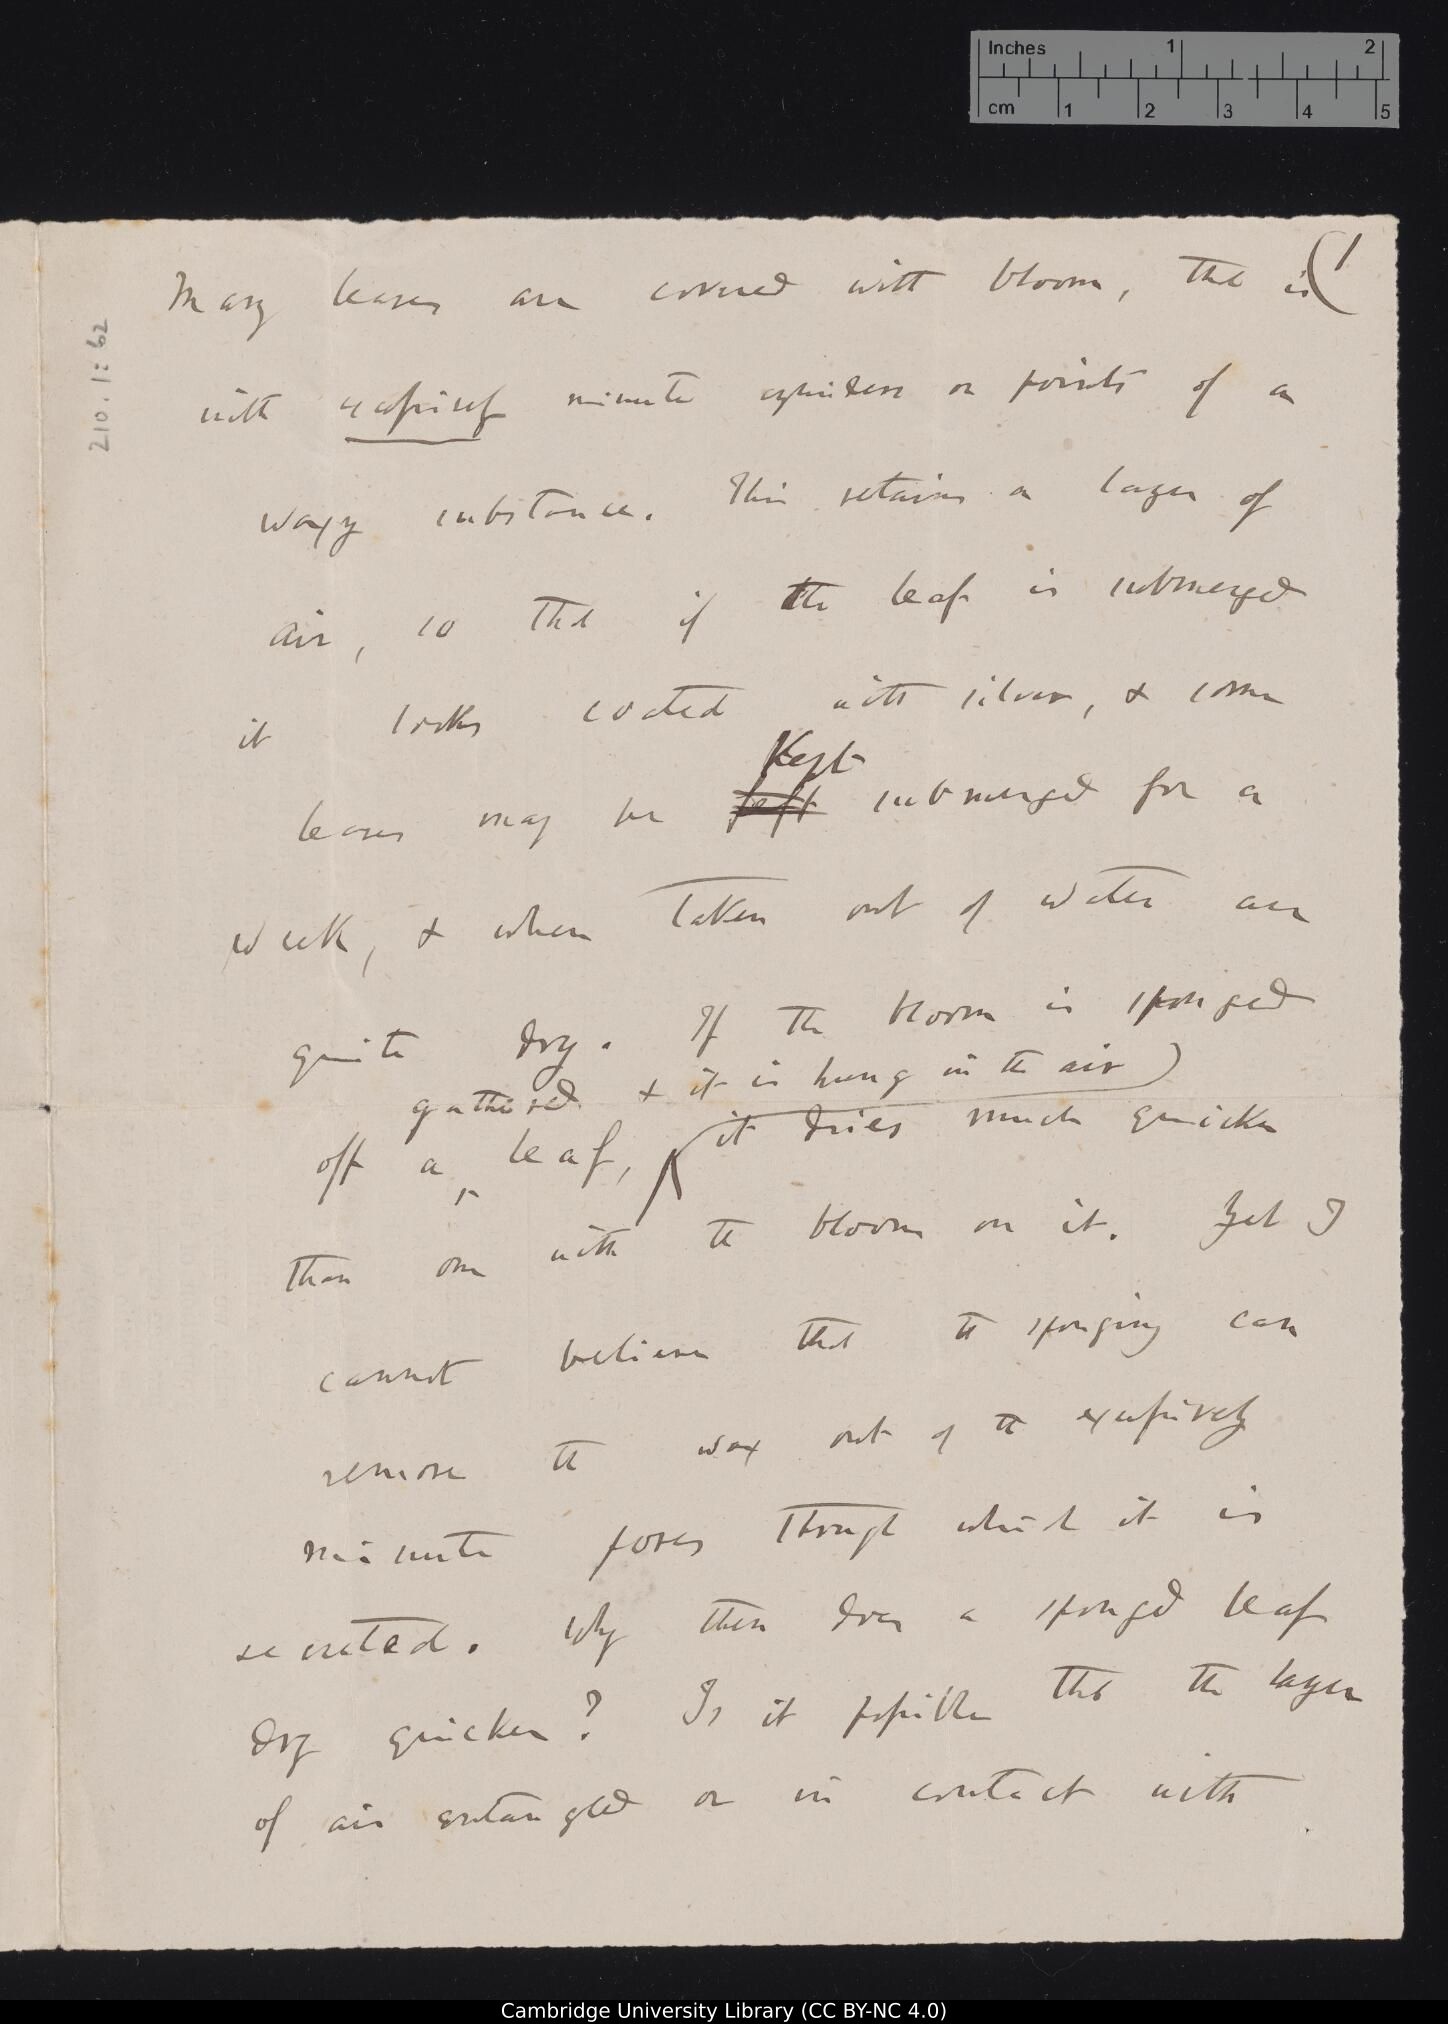 Inches 1 2
cm 1 2 3 4 5
(1
210.1:62
Many leaves are covered with bloom, that is
with excessively minute cylinders or points of a
waxy substance. This retains a layer of
air, so that if the leaf is submerged
it looks coated with silver, & some
Kept
leaves may be left submerged for a
week, & when taken out of water are
quite dry. If the bloom is sponged
gathered & it is hung in the air)
off a leaf, it dries much quicker
than one with the bloom on it. Yet I
cannot believe that the sponging can
remove the wax out of the excessively
minute pores through which it is
secreted. Why then does a sponged leaf
dry quicker? Is it possible that the layer
of air entangled or in contact with
Cambridge University Library (CC BY-NC 4.0)